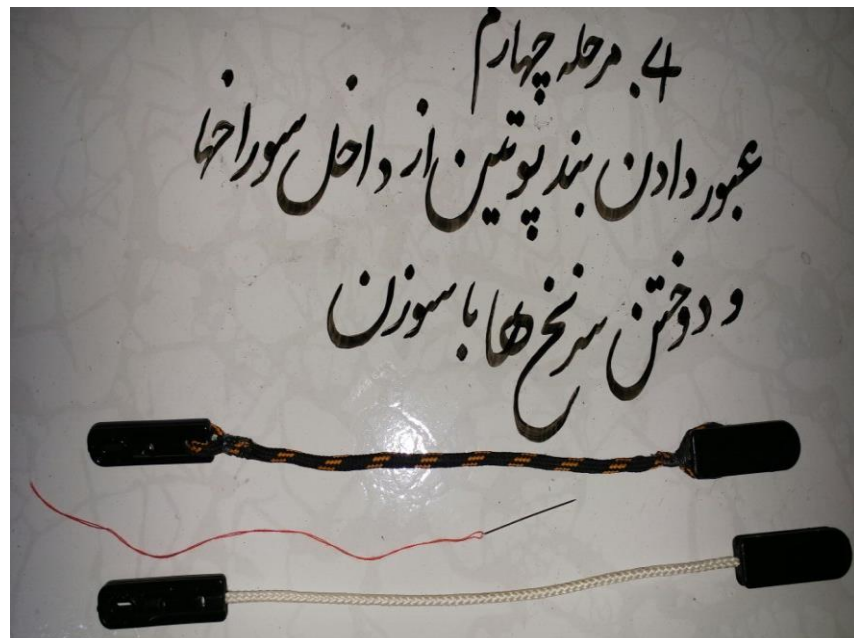 ۴. مرحله چهارم
عبور دادن بند پوتین از داخل سوراخها
و دوختن سرنخ ها با سوزن